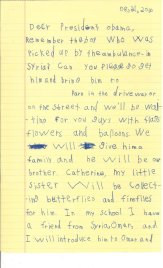 Deer President obama,
Remember the boy who was
Picked up by the ambulance in
Syria? Can you please go get
him and bring him to
Park in the driveway or
on the street and we'll be wait-
ting for you guys with flags
flowers and balloons. We
Will Give him a
family and he will be our
brother. Catherine, my little
sister will be collect-
ing butterflies and fireflies
for him. In my school I have
a friend from Syria, Omar, and
I will introduce him to Omar and